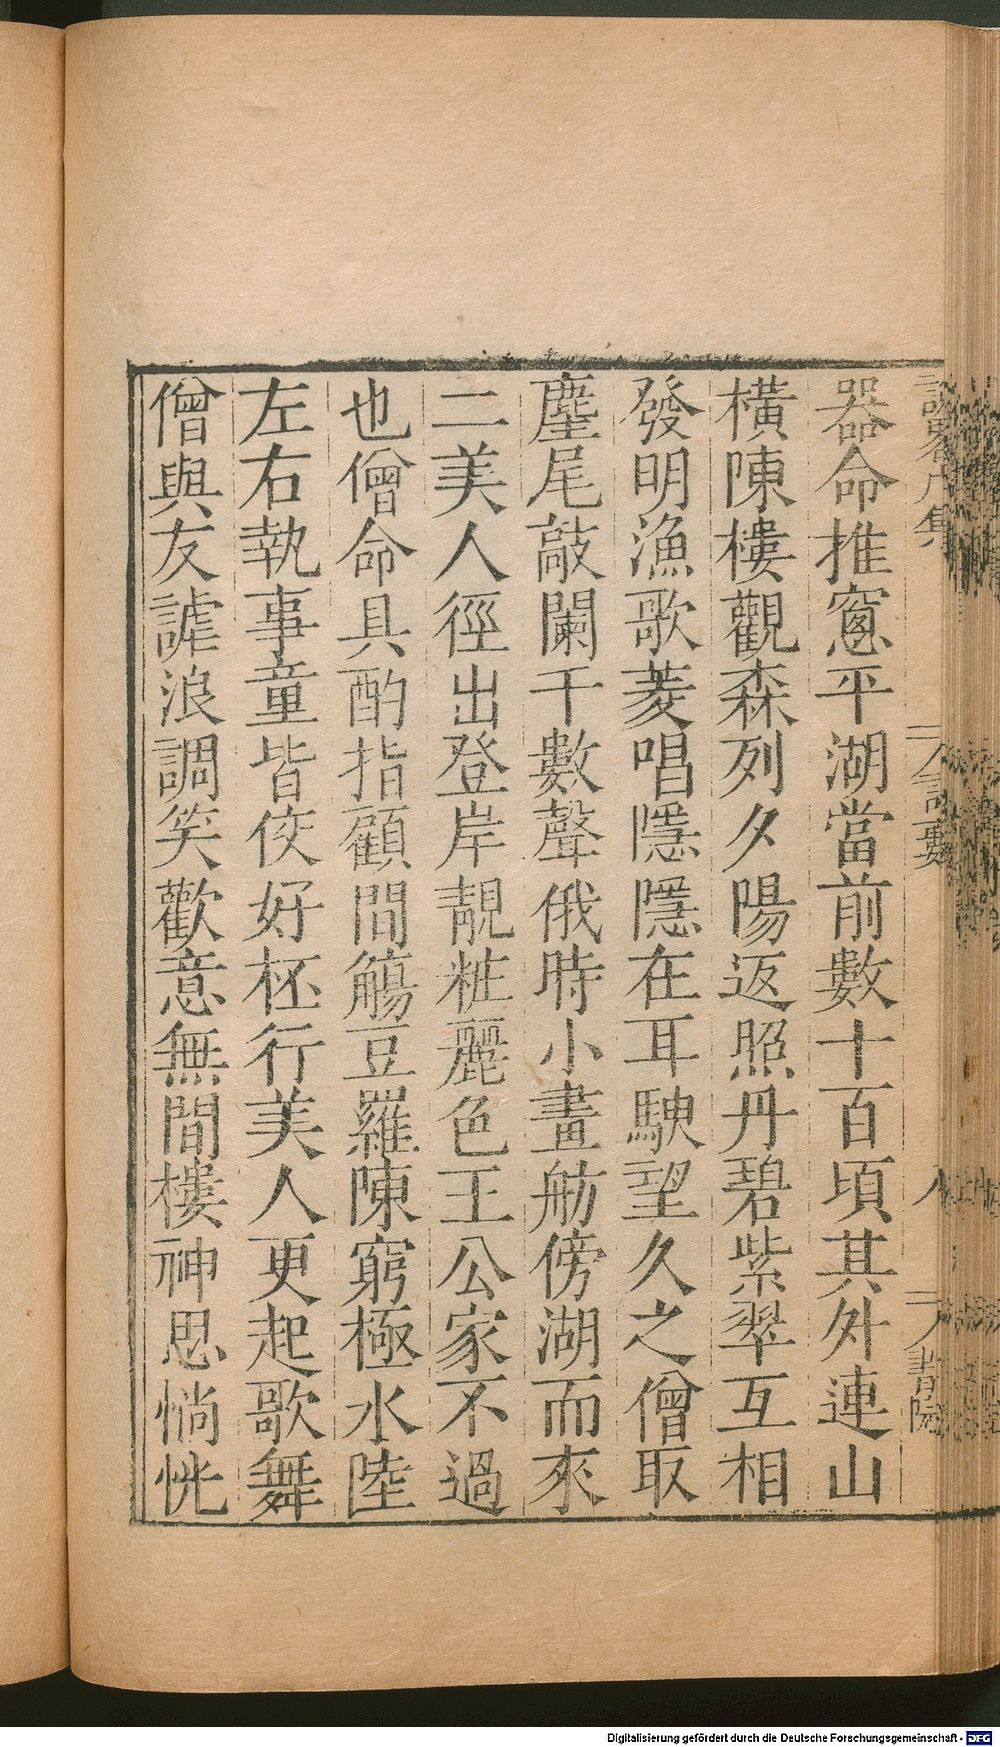 器命推窻平湖當前數十百頃其外連山
橫陳樓觀森列夕陽返照丹碧紫翠互相
發明漁歌菱唱隱隱在耳駛望久之僧取
麈尾敲闌干數聲俄時小畫舫傍湖而來
二美人徑出登岸靚粧麗色王公家不過
也僧命具酌指顧間觴豆羅陳窮極水陸
左右執事童皆佼好柸行美人更起歌舞
僧與友謔浪調笑歡意無間樓神思惝恍
Digitalisierung gefördert durch die Deutsche Forschungsgemeinschaft - DFG